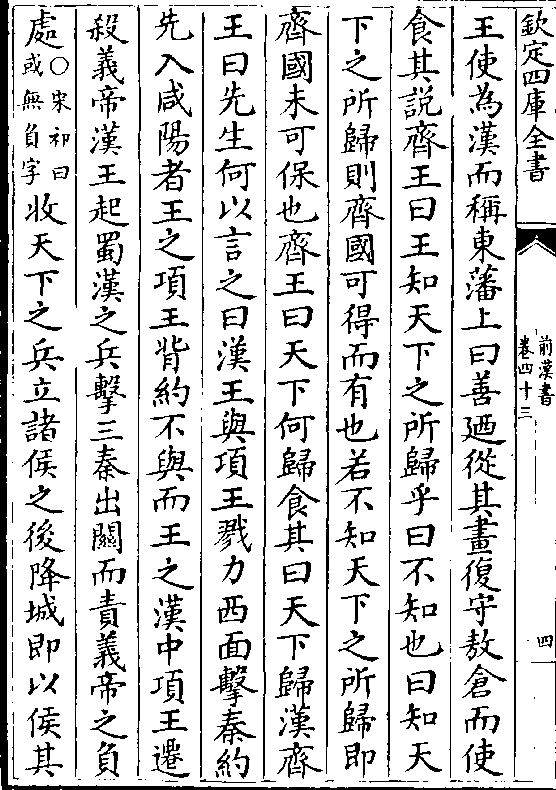 欽定四庫全書
前漢書
卷四十三
四
王使為漢而稱東藩上曰善廼從其畫復守敖倉而使
食其說齊王曰王知天下之所歸乎曰不知也曰知天
下之所歸則齊國可得而有也若不知天下之所歸即
齊國未可保也齊王曰天下何歸食其曰天下歸漢齊
王曰先生何以言之曰漢王與項王戮力西面擊秦約
先入咸陽者王之項王背約不與而王之漢中項王遷
殺義帝漢王起蜀漢之兵擊三秦出關而責義帝之負
處○宋祁曰或無負字收天下之兵立諸侯之後降城即以侯其